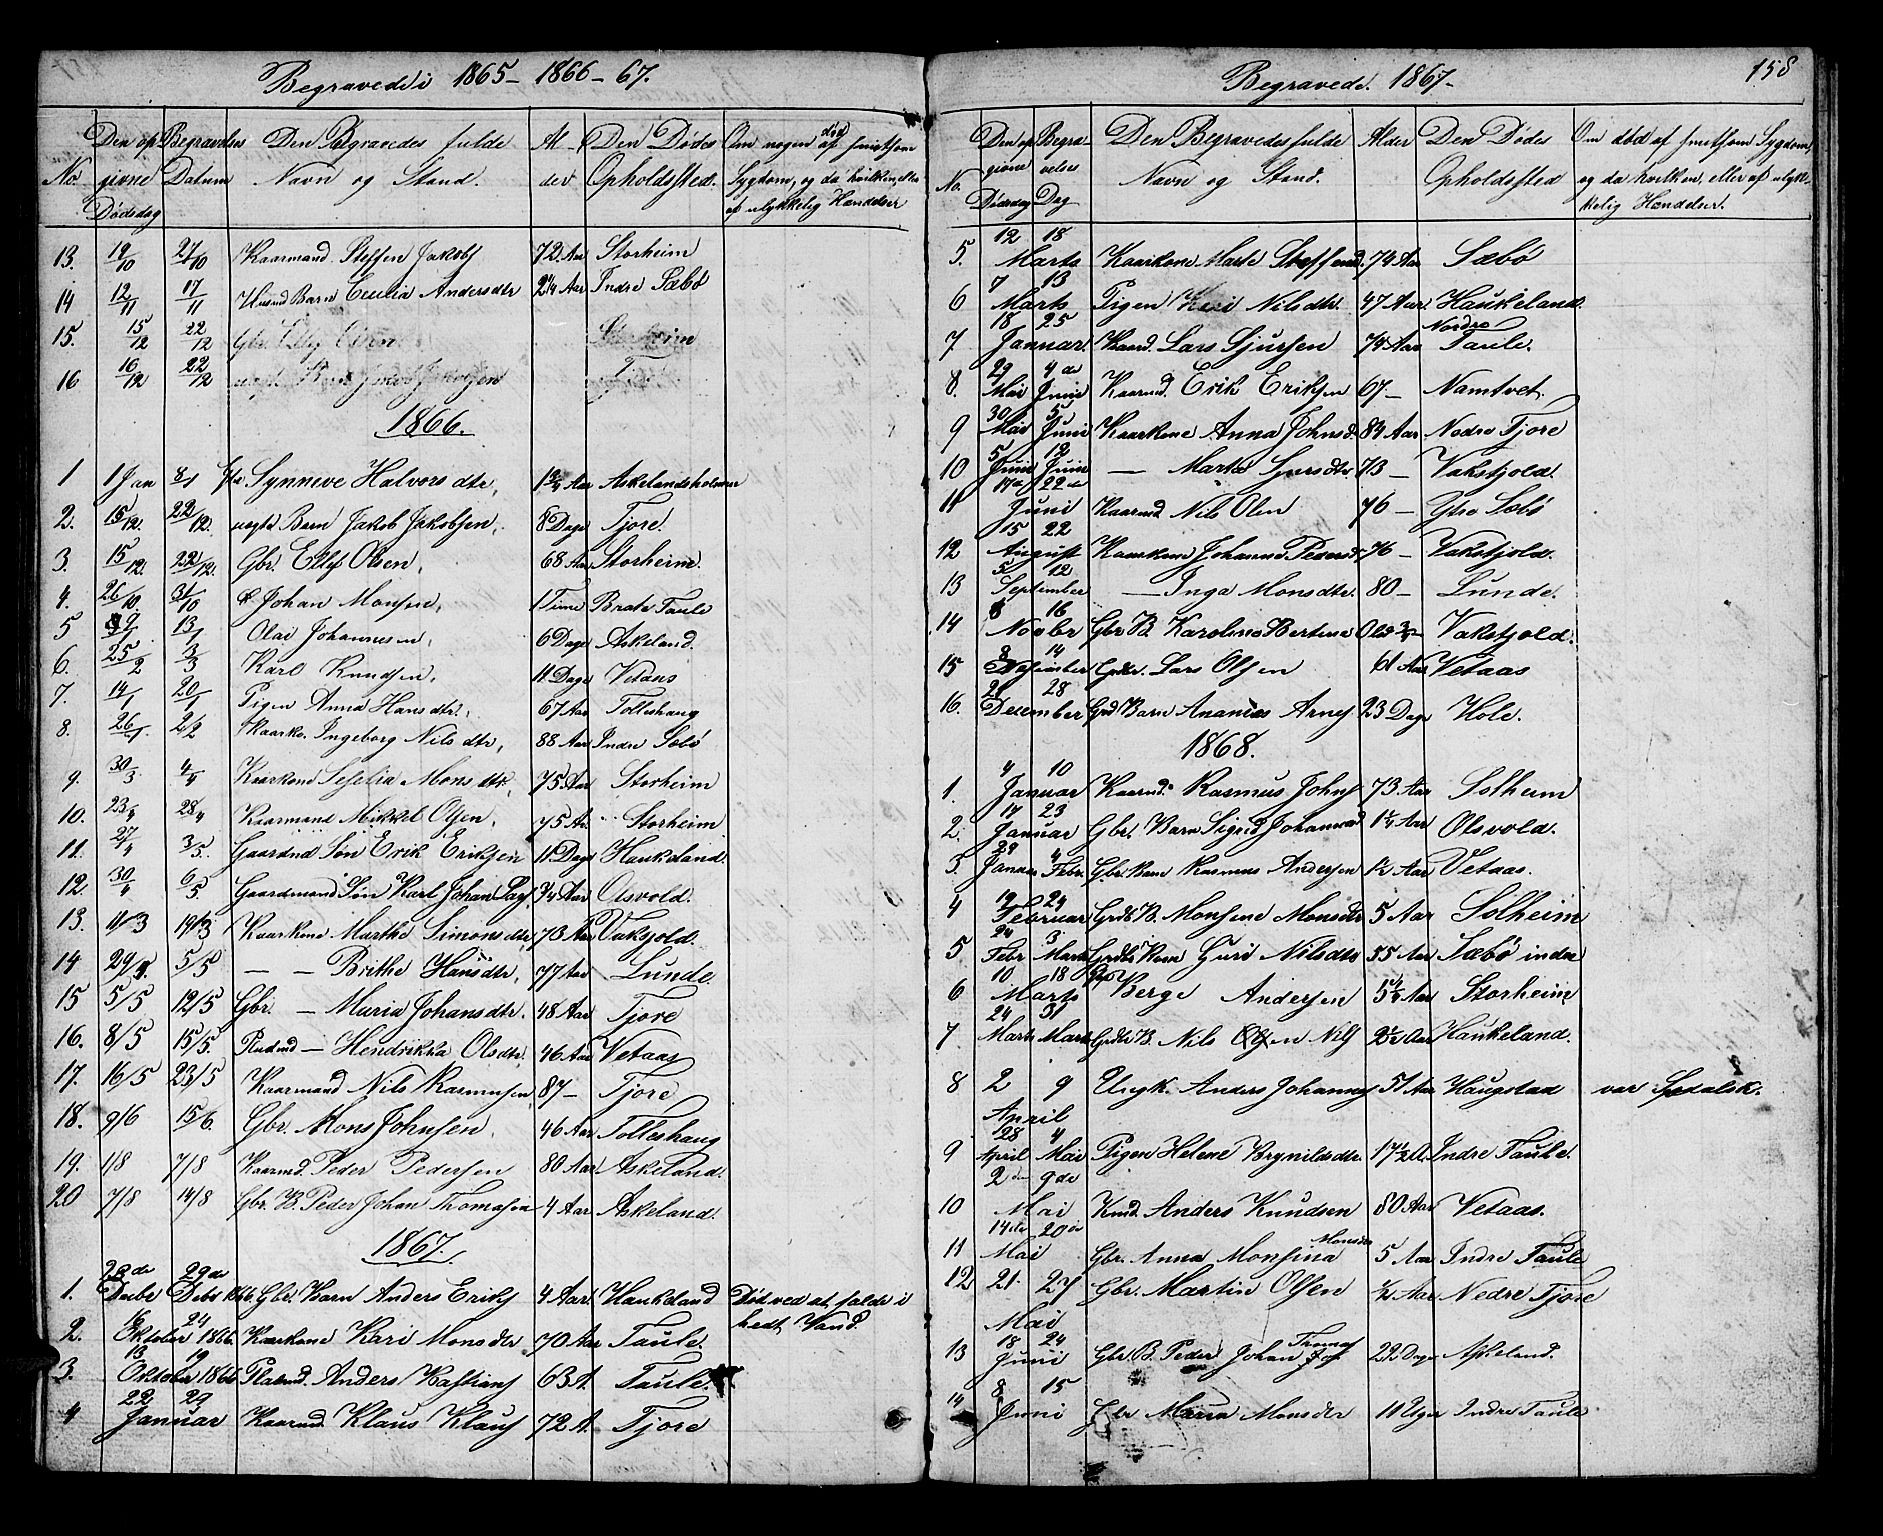 Begravede i 1865 - 1866 - 67.
No. Den op givne Dødsdag Begravelses Datum Den Begravedes fulde Navn og Stand. Alder Den Dødes Opholdssted. Om nogen død af smitsom Sygdom, og da hvilken, eller af ulykkelig Hændelser
13. 19/10 27/10 Kaarmand Steffen Jakobs 72 Aar Storheim
14 12/11 17/11 Husmd Barn Cecilia Andersdtr 2 1/4 Aar Indre Sæbø
15. 15/12 22/12 Gbr. Ellef Olsen Storheim
16 16/12 22/12 uægte Barn Jakob Jakobsen
1866.
1 1 Jan 8/1 Symneve Halvorsdtr, Aar Askelandsholmen
2. 15/12. 22/12. uægte Barn Jakob Jakobsen, 8 Dage Tjore.
3. 15/12. 22/12. Gbr. Ellef Olsen, 68 Aar Storheim.
4. 26/10. 31/10 Johan Monsen, 1 Time Brate Taule
5 13/1 Olai Johannesen, 6 Dage Askeland.
6. 25/2 3/3 Karl Knudsen, 11 Dage Vetaas
7. 14/1 20/1 Pigen Anna Hansdtr., 67 Aar Tolleshaug
8. 26/1. 2/2 Kaarko. Ingeborg Nilsdtr, 88 Aar Indre Sæbø
9. 30/3. 4/4 Kaarkone Sesselia Monsdtr, 75 Aar Storheim
10. 23/4 28/4 Kaarmand Mikkel Olsen, 75 Ar. Storheim
11. 27/4 3/5. Gaardmd Søn Erik Eriksen 11 Dage Haukeland.
12 30/4 6/5. Gaardmand Søn Karl Johan Lars, 3/4 Aar Olsvold.
13. 11/3 19/3 Kaarkone Marthe Simonsdtr, 73 Aar Vaksjold.
14 29/4. 5/5 — — Brithe Hansdtr, 77 Aar Lunde.
15 5/5 12/5 Gbr. — Maria Johansdtr. 48 Aar Tjore
16. 8/5 15/5. Pladsmd — Hendrikka Olsdtr, 46 Aar Vetaas
17. 16/5 23/5 Kaarmand Nils Rasmusen, 87 — Tjore
18. 9/6 15/6. Gbr. Mons Johnsen, 46 Aar Tolleshaug
19. 1/8 7/8 Kaarmd. Peder Pedersen 80 Aar Askeland.
20 7/8 14/8 Gbr. B. Peder Johan Thomasen 4 Aar Askeland.
1867.
1. 23de Decbr 29de Debr 1866. Gbr. Barn Anders Eriks 4 Aar Haukeland Død ved at falde i hedt Vand.
2. 16 24 Oktober 1866. Kaarkone Kari Monsdtr 70 Aar Taule.
3. 13 19 Oktober 1866 Pladsmd. Anders Bastians 63 A. Taule.
4 22 29 Januar Kaarmd. Klaus Klaus 72 A. Tjore
Begravede. 1867 - 158
No. Den op givne Dødsdag Begra velses Dag Den Begravedes fulde Navn og Stand. Alder Den Dødes Opholdssted Om død af smitsom Sygdom, og da hvilken, eller af ulyk- kelig Hændelser.
5. 12 18 Marts Kaarkone Marte Steffensd. 74 Aar Sæbø
6 7 13 Marts Pigen Kari Nilsdtr. 47 Aar Haukeland.
7 18 25 Januar. Kaard. Lars Sjursen 74 Aar Nordre Taule.
8. 29 Mai 4de Juni Kaarmd. Erik Eriksen 67 — Namtvet.
9 30 Mai 5 Juni Kaarkone Anna Johnsd. 84 Aar Nedre Tjore
10 5 Juni 12 Juni — Marta Sjursdtr. 73 — Vakstjold.
11 17de 22de Juni Kaarmd Nils Olsen 76 — Ytre Sæbø
12 15 22 August Kaarkone Johanna Pedersd. 76 — Vakstjold.
13 5 12 September — Inga Monsdtr. 80 — Lunde.
14 8 16 Novbr Gbr B. Karolina Bertine Vakstjold.
15 8 14 Gbr. Lars Olsen 61 Aar Vetaas
16. 21 28 Desember Grd Barn Ananias Arnes 23 Dage Hole.
1868.
1. 4 10 Januar Kaarmd. Rasmus Johns 73 Aar Solheim
2. 17 23 Januar Gbr. Barn Sigrid Johannesd 1 1/4 Aar Olsvold.
3. 29 Januar 4 Febr. Gbr. Barn Rasmus Andersen 1/2 Aar Vetaas.
4 19 24 Februar Grdb B. Monsine Monsdtr 5 Aar Solheim
5 24 Febr 3 Marts Grdb Kone Guri Nilsdtr 35 Aar Sæbø indre
6 10 18 Marts Berge Andersen Aar Storheim
7 24 Marts 31 Marts Grdb B. Nils Nils 2 1/2 Aar Haukeland.
8 2 9 April Ungk. Anders Johannes 51 Aar Haugstad var Spedalsk.
9 28 April 4 Mai Pigen Helene Brynildsdtr. 17 1/2 A. Indre Taule.
10 2den 9de Mai Kmd. Anders Knudsen 80 Aar Vetaas.
11 14de 20de Mai Gbr. Anna Monsina Monsdtr 5 Aar Indre Taule
12 21. 27 Mai Gbr. Martin Olsen 1/2 Aar Nedre Tjore
13 18 24 Juni Gbr. B. Peder Johan Thomas 22 Dage Askeland.
14 8 15 Juni Gbr Maria Monsdtr 11 Uger Indre Taule